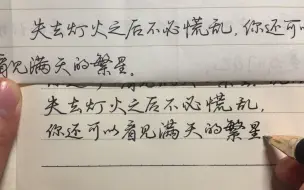 失去灯火之后不必慌乱,你还可
看见满天的繁星。
失去灯火之后不必慌乱,
你还可以看见满天的繁星